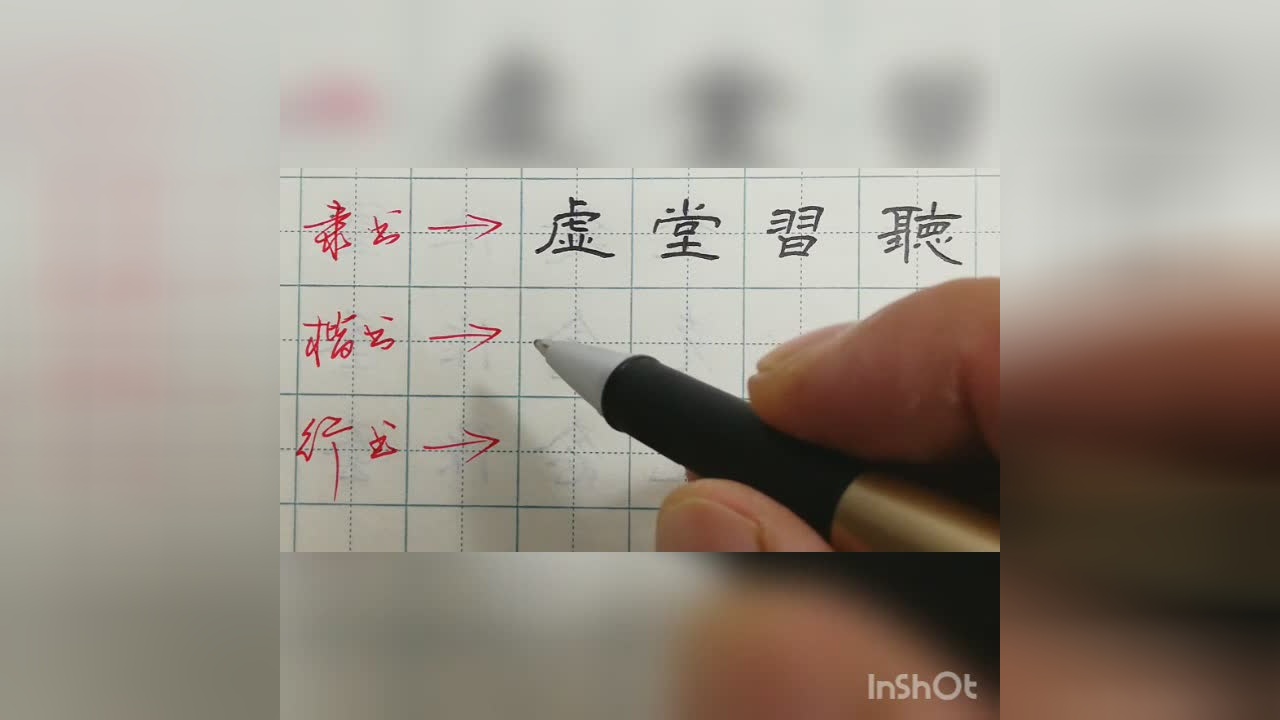 隶书 → 虚堂習聽
楷书 →
行书 →
InShOt